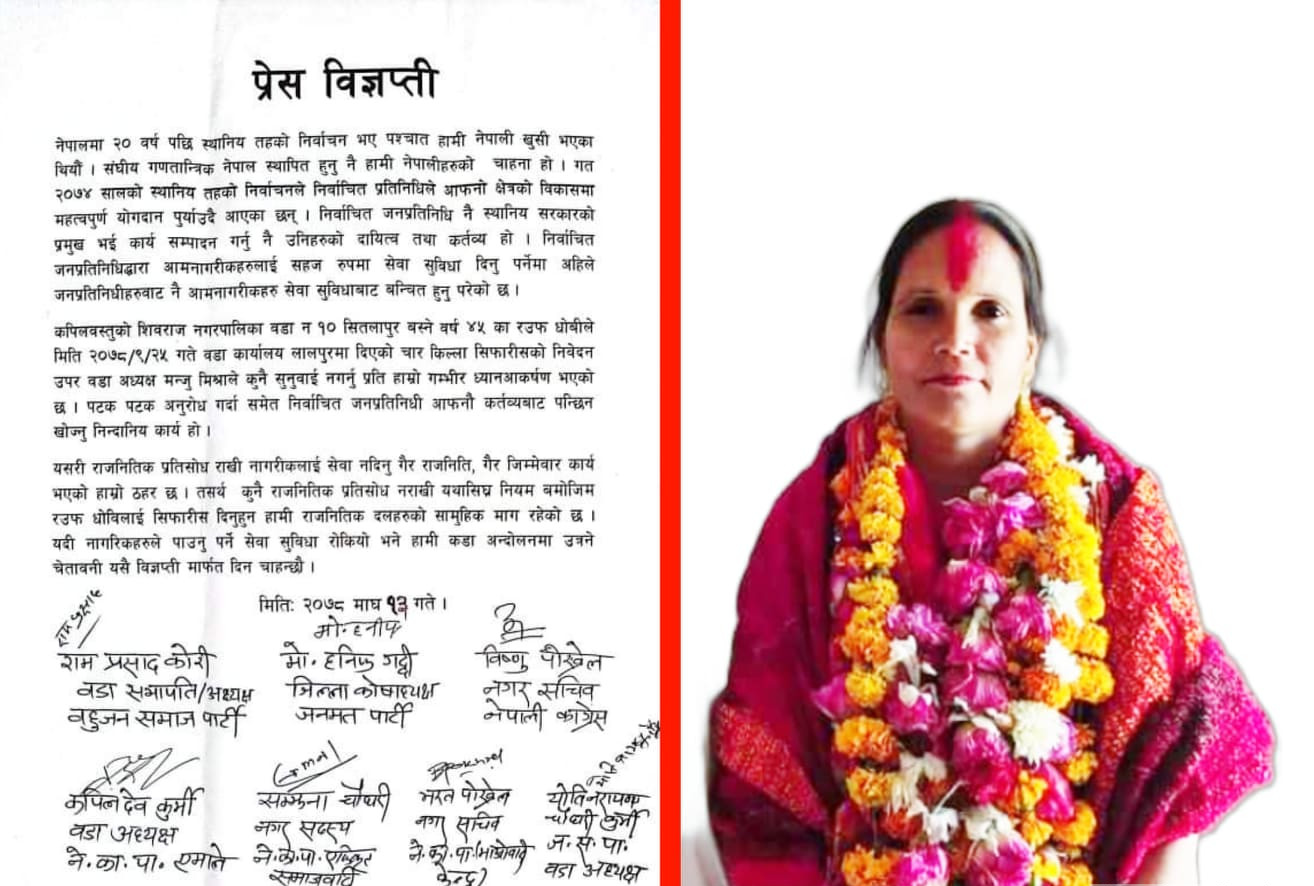 प्रेस विज्ञप्ती
नेपालमा २० वर्ष पछि स्थानिय तहको निर्वाचन भए पश्चात हामी नेपाली खुसी भएका
थियौं । संघीय गणतान्त्रिक नेपाल स्थापित हुनु नै हामी नेपालीहरुको चाहना हो । गत
२०७४ सालको स्थानिय तहको निर्वाचनले निर्वाचित प्रतिनिधिले आफनो क्षेत्रको विकासमा
महत्वपुर्ण योगदान पुर्याउदै आएका छन् । निर्वाचित जनप्रतिनिधि नै स्थानिय सरकारको
प्रमुख भई कार्य सम्पादन गर्नु नै उनिहरुको दायित्व तथा कर्तव्य हो । निर्वाचित
जनप्रतिनिधिद्धारा आमनागरीकहरुलाई सहज रुपमा सेवा सुविधा दिनु पर्नेमा अहिले
जनप्रतिनिधीहरुवाट नै आमनागरीकहरु सेवा सुविधाबाट बन्चित हुनु परेको छ ।
कपिलवस्तुको शिवराज नगरपालिका वडा न १० सितलापुर बस्ने वर्ष ४५ का रउफ धोबीले
मिति २०७८/९/२५ गते वडा कार्यालय लालपुरमा दिएको चार किल्ला सिफारीसको निवेदन
उपर वडा अध्यक्ष मन्जु मिश्राले कुनै सुनुवाई नगर्नु प्रति हाम्रो गम्भीर ध्यानआकर्षण भएको
छ । पटक पटक अनुरोध गर्दा समेत निर्वाचित जनप्रतिनिधी आफनौ कर्तव्यबाट पन्छिन
खोज्नु निन्दानिय कार्य हो ।
यसरी राजनितिक प्रतिसोध राखी नागरीकलाई सेवा नदिनु गैर राजनिति, गैर जिम्मेवार कार्य
भएको हाम्रो ठहर छ । तसर्थ कुनै राजनितिक प्रतिसोध नराखी यथासिघ्र नियम बमोजिम
रउफ धोविलाई सिफारीस दिनुहुन हामी राजनितिक दलहरुको सामुहिक माग रहेको छ ।
यदी नागरिकहरुले पाउनु पर्ने सेवा सुविधा रोकियो भने हामी कडा अन्दोलनमा उत्रने
चेतावनी यसै विज्ञप्ती मार्फत दिन चाहन्छौ ।
मितिः २०७८ माघ १३ गते ।
राम प्रसाद
मो. हनीफ
राम प्रसाद कोरी
वडा सभापति/अध्यक्ष
वहुजन समाज पार्टी
मो. हनिफ गद्दी
जिल्ला कोषाध्यक्ष
जनमत पार्टी
विष्णु पौख्रेल
नगर सचिव
नेपाली काग्रेस
कपिलदेव कुर्मी
वडा अध्यक्ष
ने. का. पा. एमाले
सम्झना चौधरी
नगर सदस्य
ने. क. पा. एकिकृत
समाजवादी
भरत पोख्रेल
नगर सचिव
ने. क. पा. (माओवादी
केन्द्र)
चौधरी कुर्मी
ज. स. पा.
वडा अध्यक्ष